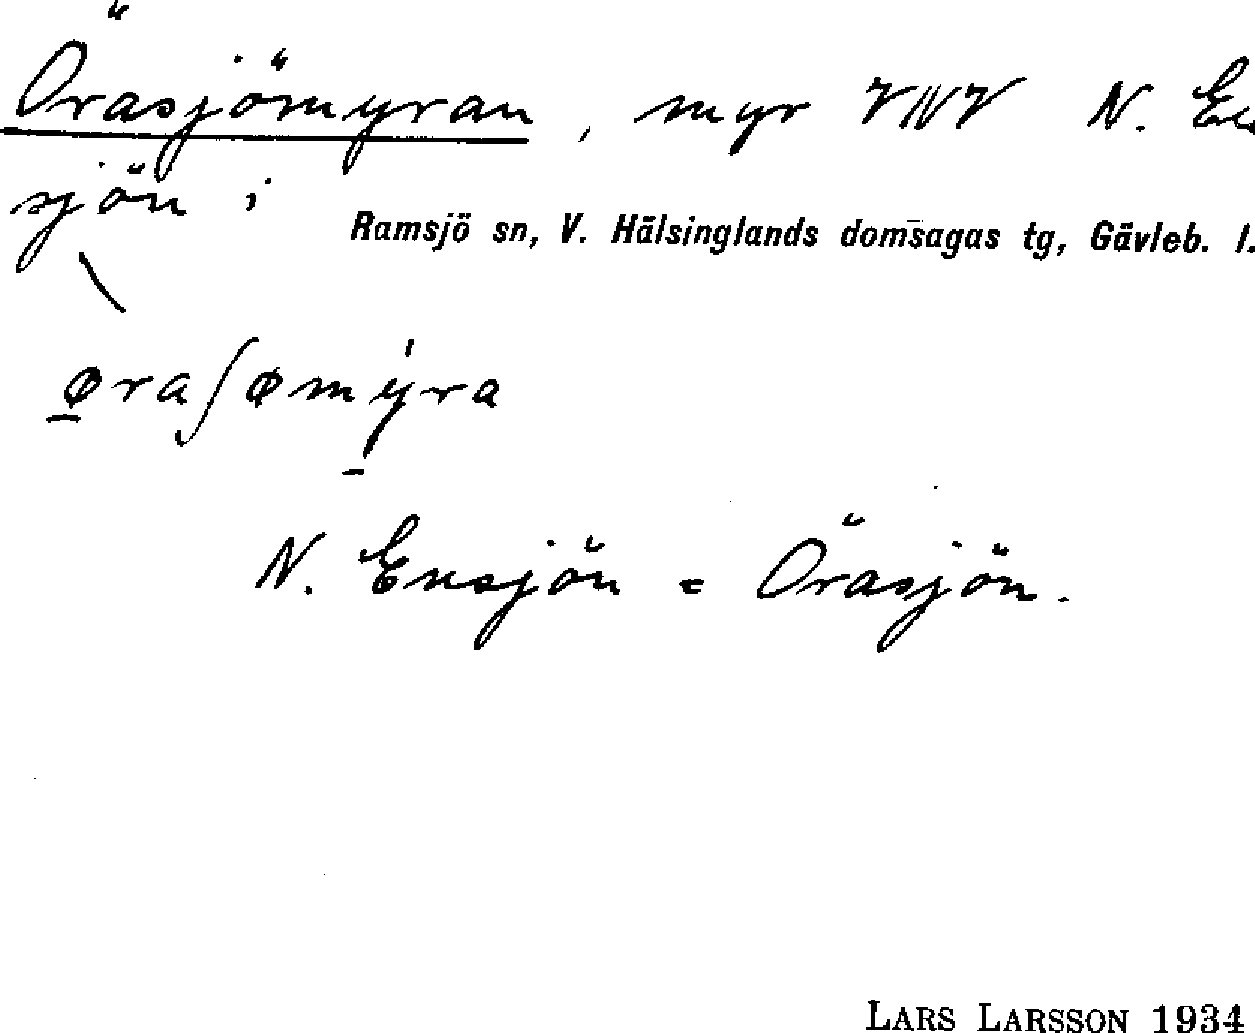 Örasjömyran, myr VNV N. En
sjön i
Ramsjö sn, V. Hälsinglands domsagas tg, Gävleb. l.
øraʃømyra
N. Ensjön = Örasjön.
LARS LARSSON 1934